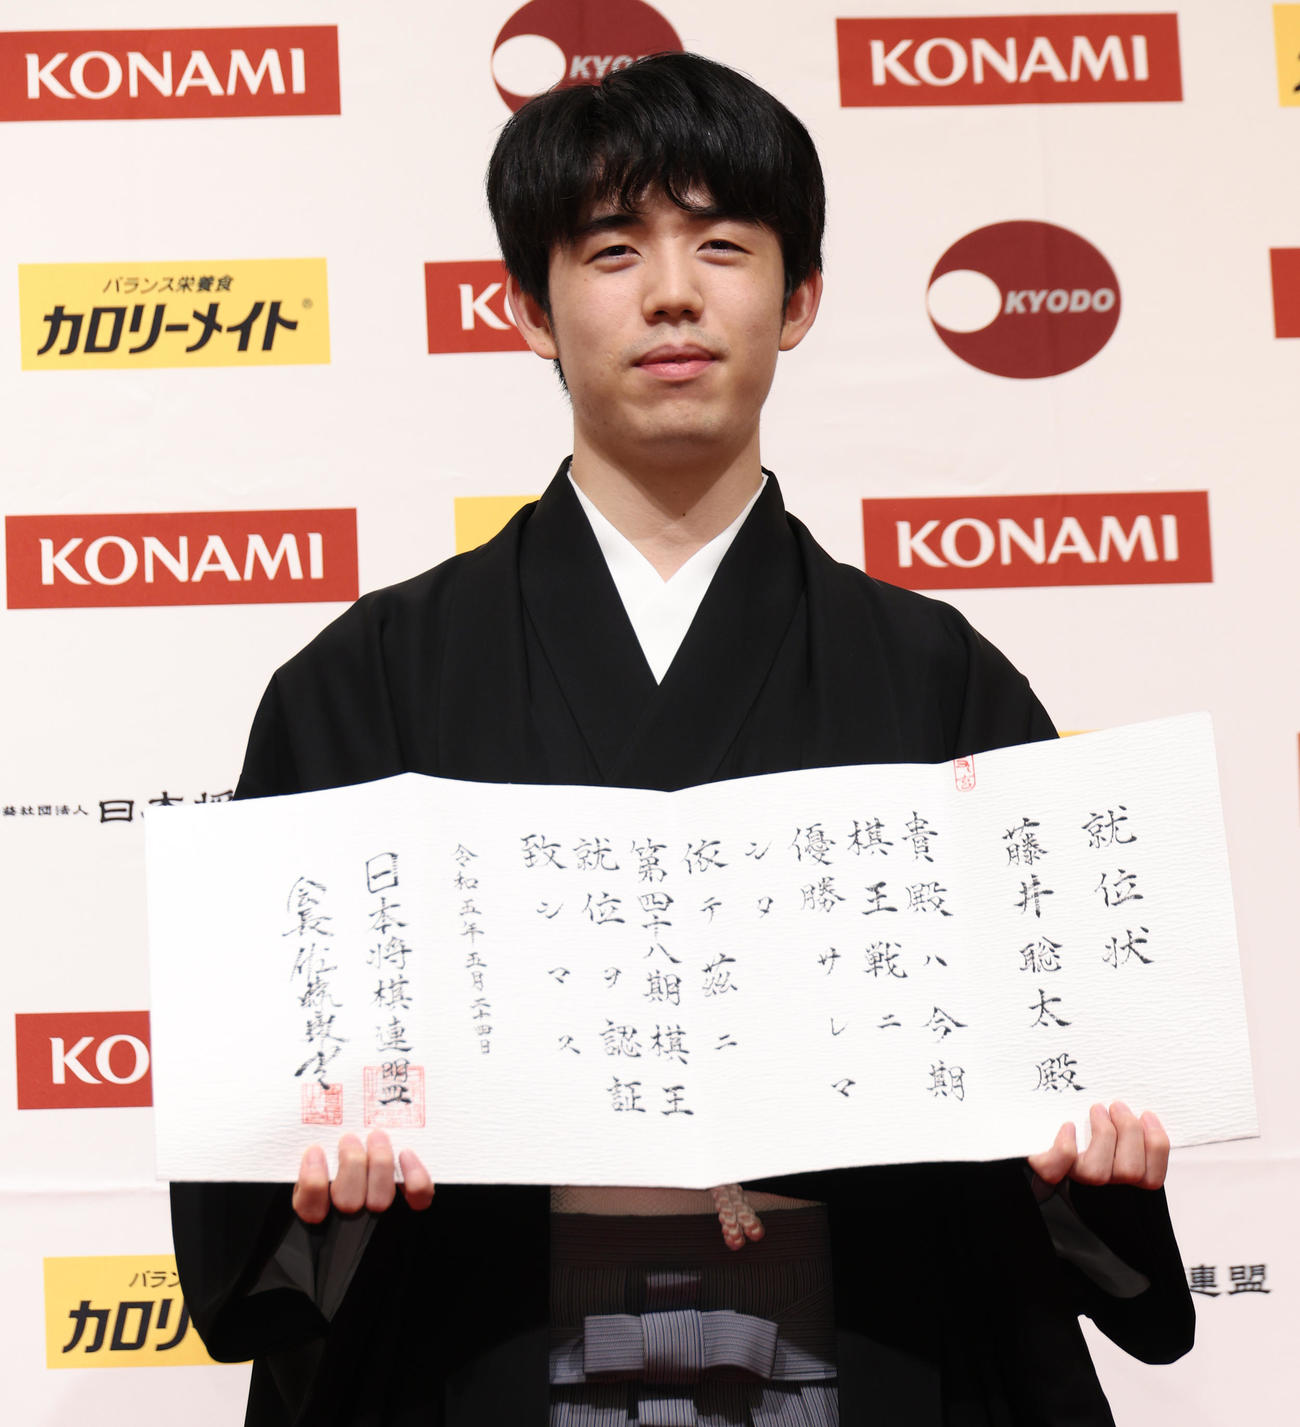 KONAMI
KYO
KONAMI
バランス栄養食
カロリーメイト®
K
KYODO
KONAMI
KONAMI
社団法人
日本将
就位状
藤井聡太殿
貴殿ハ今期
棋王戦ニ
優勝サレマ
シタ
依テ茲ニ
第四十八期棋王
就位ヲ認証
致シマス
令和五年五月二十四日
日本将棋連盟
会長佐藤康光
KO
連盟
バラン
カロリ